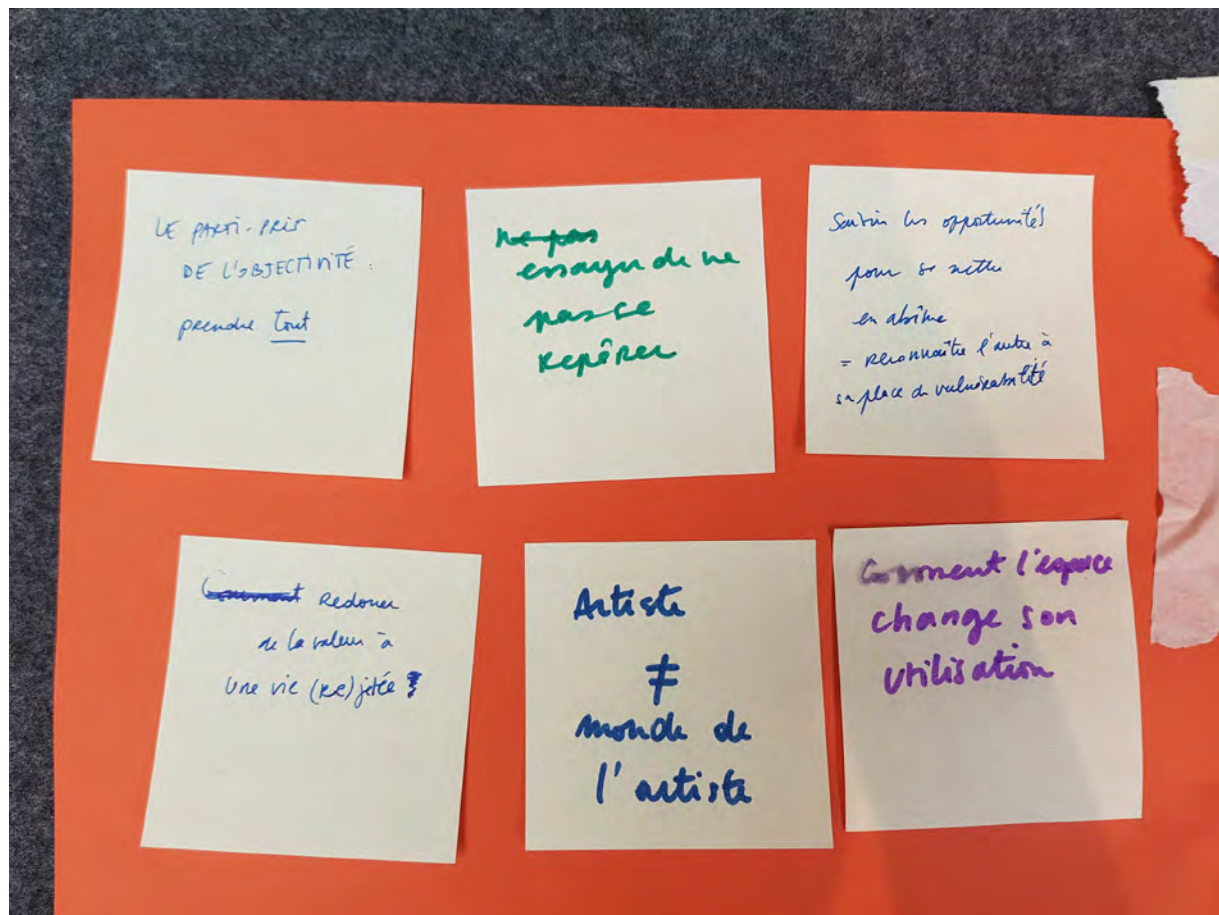 LE PARTI-PRIS
DE L'OBJECTIVITÉ :
prendre tout
ne pas
essayer de ne
pas se
repérer
Saisir les opportunités
pour se mettre
en abîme
= reconnaître l'autre à
sa place de vulnérabilité
Comment Redoner
de la valeur à
une vie (re)jetée
Artiste
≠
monde de
l'artiste
Comment l'espace
change son
utilisation